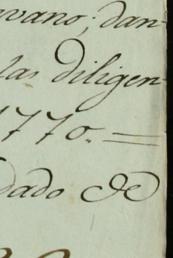 evano; dan-
las diligen-
1770. =
dado de